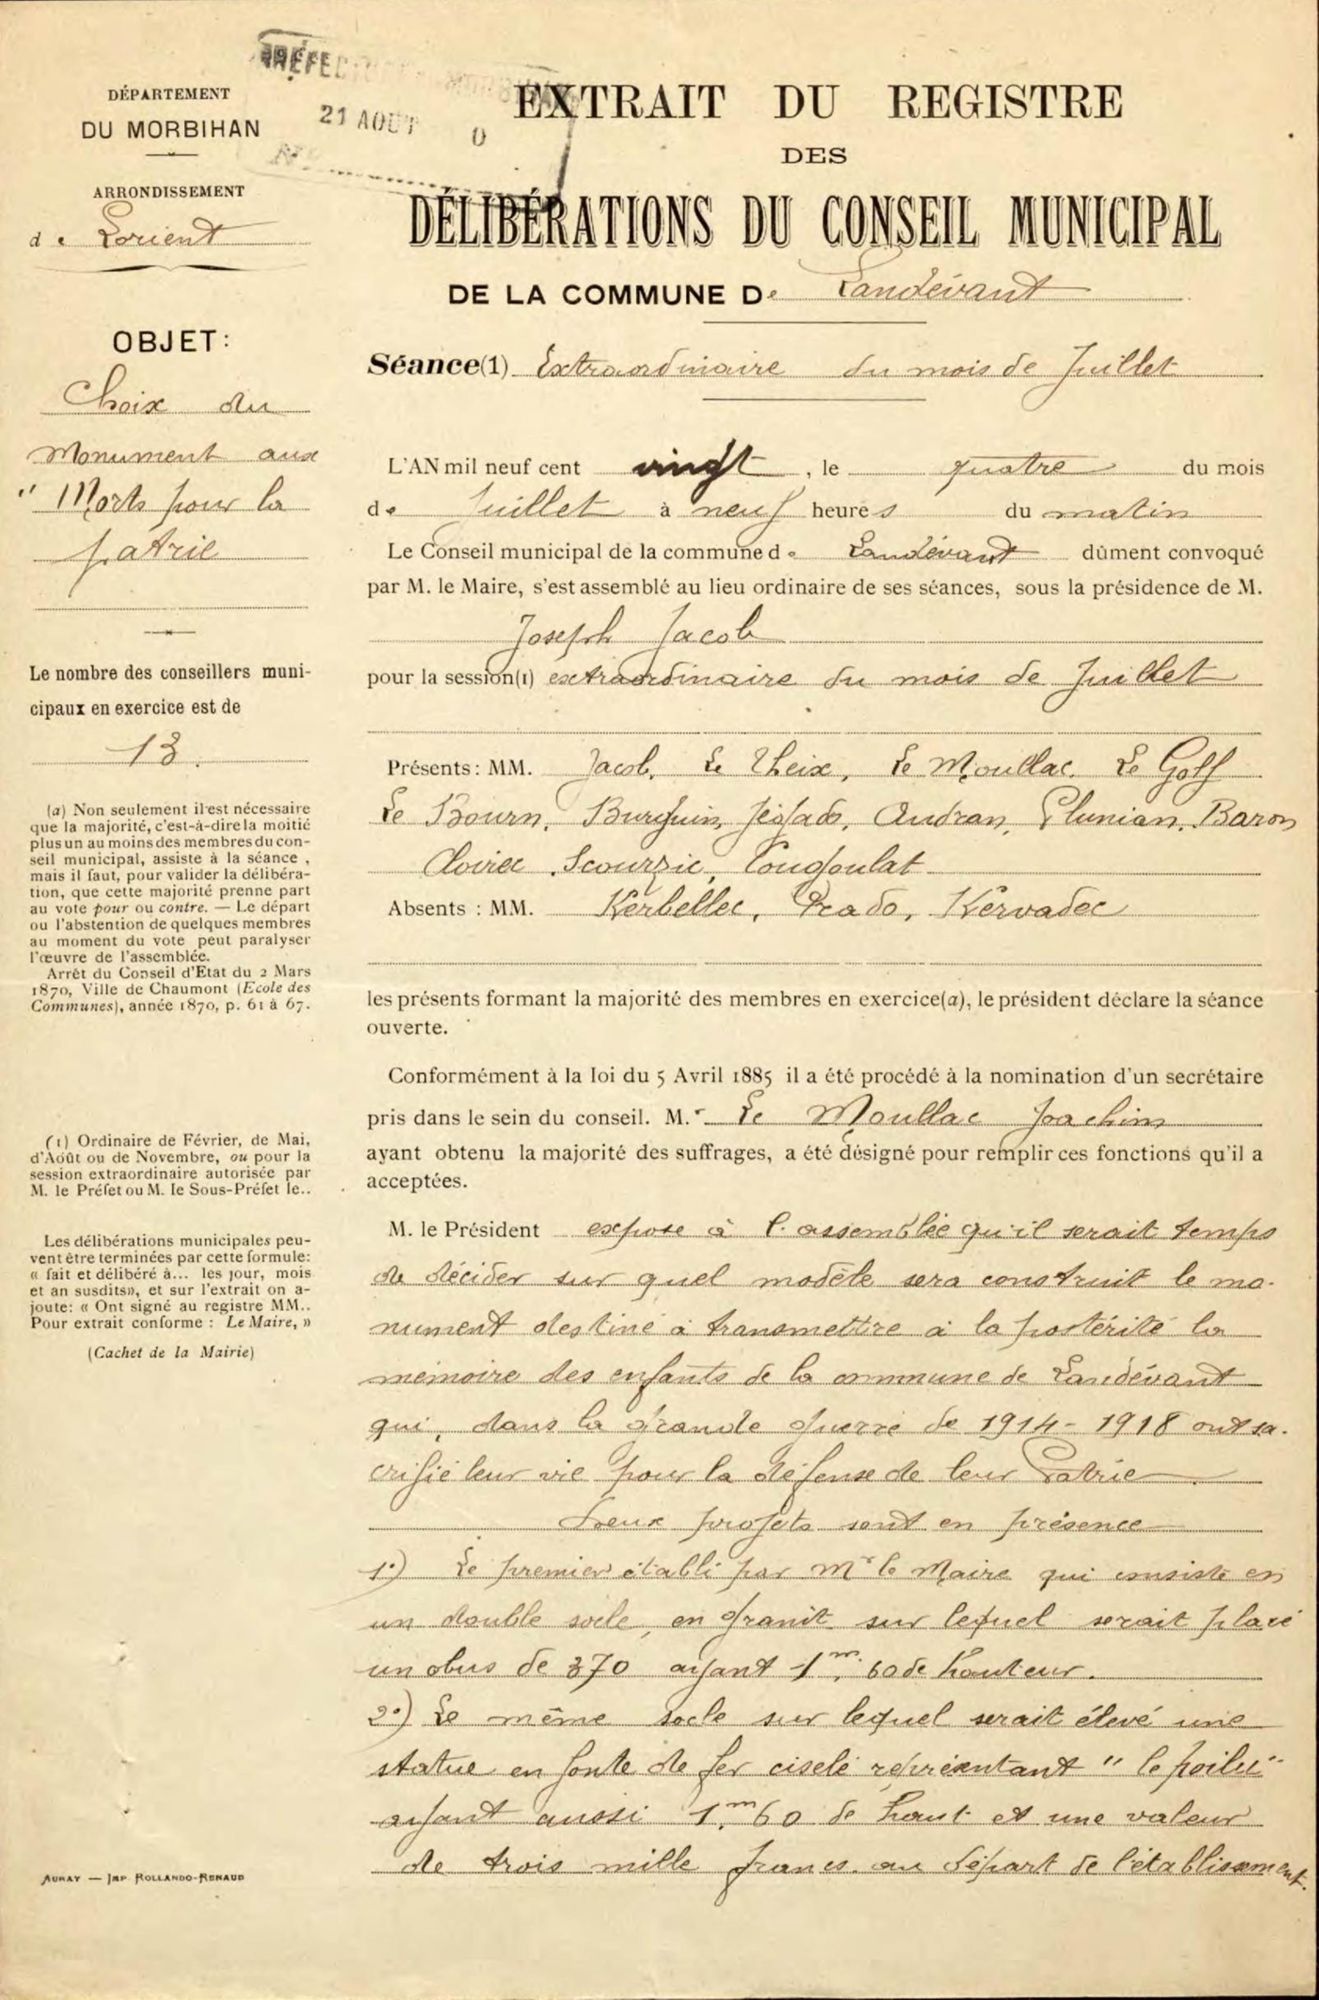 PRÉFEC
21 AOUT 0
N
DÉPARTEMENT
DU MORBIHAN
ARRONDISSEMENT
de Lorient
OBJET:
Choix du
Monument aux
" Morts pour la
patrie
Le nombre des conseillers muni-
cipaux en exercice est de
13.
(a) Non seulement il est nécessaire
que la majorité, c'est-à-dire la moitié
plus un au moins des membres du con-
seil municipal, assiste à la séance,
mais il faut, pour valider la délibéra-
tion, que cette majorité prenne part
au vote pour ou contre. — Le départ
ou l'abstention de quelques membres
au moment du vote peut paralyser
l'œuvre de l'assemblée.
Arrêt du Conseil d'Etat du 2 Mars
1870, Ville de Chaumont (Ecole des
Communes), année 1870, p. 61 à 67.
(1) Ordinaire de Février, de Mai,
d'Août ou de Novembre, ou pour la
session extraordinaire autorisée par
M. le Préfet ou M. le Sous-Préfet le..
Les délibérations municipales peu-
vent être terminées par cette formule:
« fait et délibéré à... les jour, mois
et an susdits», et sur l'extrait on a-
joute: « Ont signé au registre MM..
Pour extrait conforme : Le Maire, »
(Cachet de la Mairie)
AURAY — IMP ROLLANDO-RENAUD
EXTRAIT DU REGISTRE
DES
DÉLIBÉRATIONS DU CONSEIL MUNICIPAL
DE LA COMMUNE De Landévant
Séance(1) Extraordinaire du mois de Juillet
L'AN mil neuf cent vingt, le quatre du mois
de Juillet à neuf heures du matin
Le Conseil municipal de la commune de Landévant dûment convoqué
par M. le Maire, s'est assemblé au lieu ordinaire de ses séances, sous la présidence de M.
Joseph Jacob
pour la session(1) extraordinaire du mois de Juillet
Présents: MM. Jacob, Le Theix, Le Moullac, Le Goff
Le Bourn, Burguin, Jégado, Audran, Plunian, Baron
Cloirec, Scourzic, Tougoulat
Absents : MM. Kerbellec, Prado, Kervadec
les présents formant la majorité des membres en exercice(a), le président déclare la séance
ouverte.
Conformément à la loi du 5 Avril 1885 il a été procédé à la nomination d'un secrétaire
pris dans le sein du conseil. M.r Le Moullac Joachim
ayant obtenu la majorité des suffrages, a été désigné pour remplir ces fonctions qu'il a
acceptées.
M. le Président expose à l'assemblée qu'il serait temps
de décider sur quel modèle sera construit le mo-
nument destiné à transmettre à la postérité la
mémoire des enfants de la commune de Landévant
qui, dans la grande guerre de 1914-1918 ont sa-
crifié leur vie pour la défense de leur Patrie
Deux projets sont en présence
1°) Le premier établi par Mr le Maire qui consiste en
un double socle, en granit sur lequel serait placé
un obus de 370 ayant 1m,60 de hauteur.
2°) Le même socle sur lequel serait élevé une
statue en fonte de fer ciselé représentant "le poilu"
ayant aussi 1m,60 de haut et une valeur
de trois mille francs au départ de l'établissement.